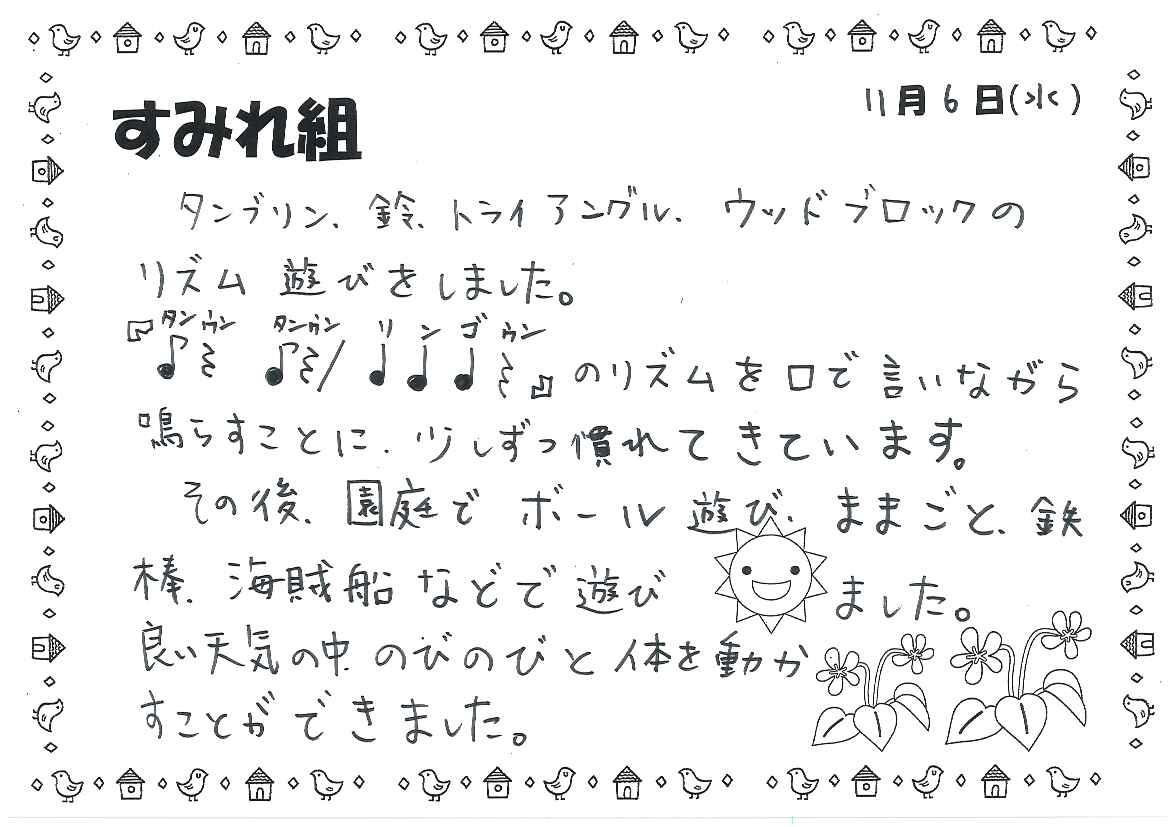 すみれ組
11月6日(水)
タンブリン、鈴、トライアングル、ウッドブロックの
リズム遊びをしました。
タンウン タンウン リンゴウン
『♪𝄽 ♪𝄽/♩♩♩𝄽』のリズムを口で言いながら
鳴らすことに、少しずつ慣れてきています。
その後、園庭でボール遊び、ままごと、鉄
棒、海賊船などで遊びました。
良い天気の中、のびのびと体を動か
すことができました。